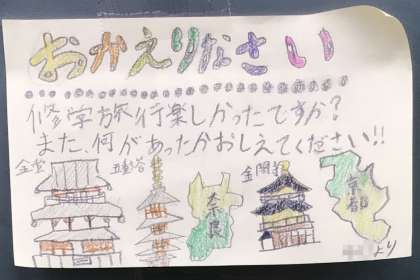 おかえりなさい
修学旅行楽しかったですか?
また、何があったかおしえてください!!
金堂
五重塔
奈良
金閣寺
京都
より